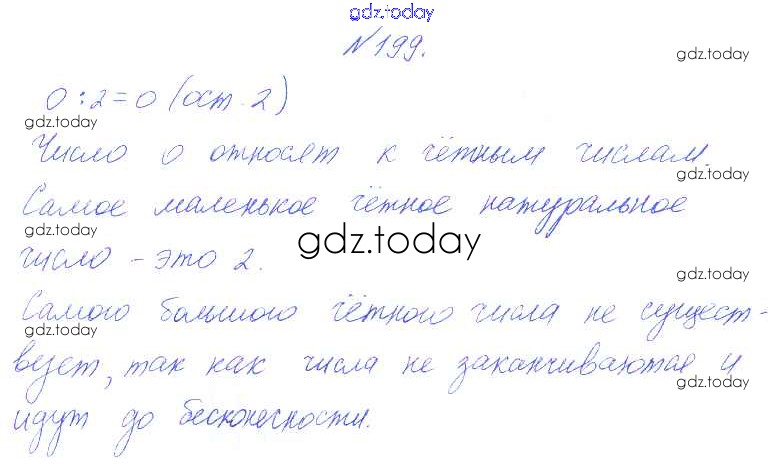 gdz.today
№199.
gdz.today
0 : 2 = 0 (ост. 2)
gdz.today
Число 0 относят к чётным числам.
gdz.today
Самое маленькое чётное натуральное
gdz.today
gdz.today
число - это 2.
gdz.today
Самого большого чётного числа не сущест-
gdz.today
вует, так как числа не заканчиваются и
gdz.today
идут до бесконечности.